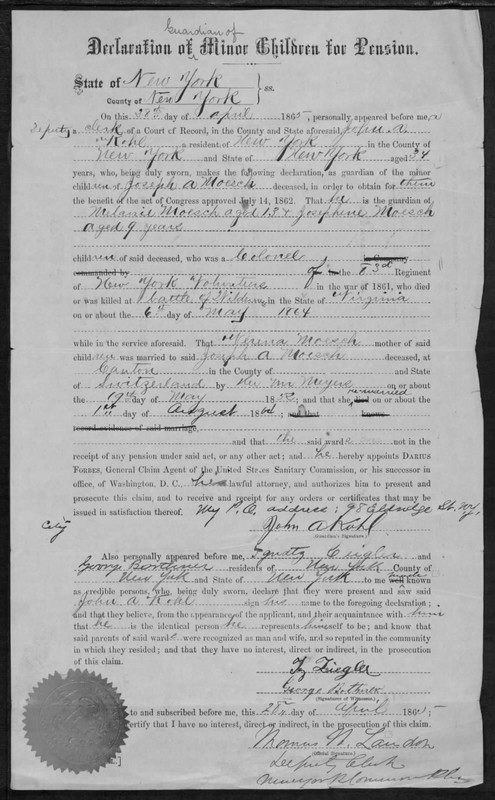 Guardian of
Declaration of Minor Children for Pension.
State of New York
County of New York } ss.
On this 28th day of April 1865, personally appeared before me, a
Deputy clerk of a Court of Record, in the County and State aforesaid, John A.
Kohl a resident of New York in the County of
New York and State of New York aged 34
years, who, being duly sworn, makes the following declaration, as guardian of the minor
children of Joseph A Moesch deceased, in order to obtain for them
the benefit of the act of Congress approved July 14, 1862. That he is the guardian of
Melanie Moesch aged 13 & Josephine Moesch
aged 9 years
children of said deceased, who was a Colonel in Company
commanded by of in the 83d Regiment
of New York Volunteers in the war of 1861, who died
or was killed at battle of Wilderness, in the State of Virginia
on or about the 6th day of May 1864
while in the service aforesaid. That Verena Moesch mother of said
children was married to said Joseph A Moesch deceased, at
Canton in the County of and State
of Switzerland by on or about
the 19th day of May 1850; and that she remarried died on or about the
1st day of August 1864; and that knows
record evidence of said marriage,
and that the said wards not in the
receipt of any pension under said act, or any other act; and he hereby appoints DARIUS
FORBES, General Claim Agent of the United States Sanitary Commission, or his successor in
office, of Washington, D. C. his lawful attorney, and authorizes him to present and
prosecute this claim, and to receive and receipt for any orders or certificates that may be
issued in satisfaction thereof. My P.O. address; 98 Eldridge St. N.Y.
City John A Kohl
(Guardian's Signature.)
Also personally appeared before me, Ignatz Ziegler and
George residents of New York County of
New York and State of New York to me well known
as credible persons, who, being duly sworn, declare that they were present and saw said
John A Kohl sign his name to the foregoing declaration;
and that they believe, from the appearance of the applicant, and their acquaintance with him
that he is the identical person he represents himself to be; and know that
said parents of said wards were recognized as man and wife, and so reputed in the community
in which they resided; and that they have no interest, direct or indirect, in the prosecution
of this claim.
Ig Ziegler
George
(Signatures of Witnesses.)
to and subscribed before me, this 28 day of April 1865
certify that I have no interest, direct or indirect, in the prosecution of this claim.
Thomas Landon
(Official Signature.)
Deputy Clerk
New York Common Pleas